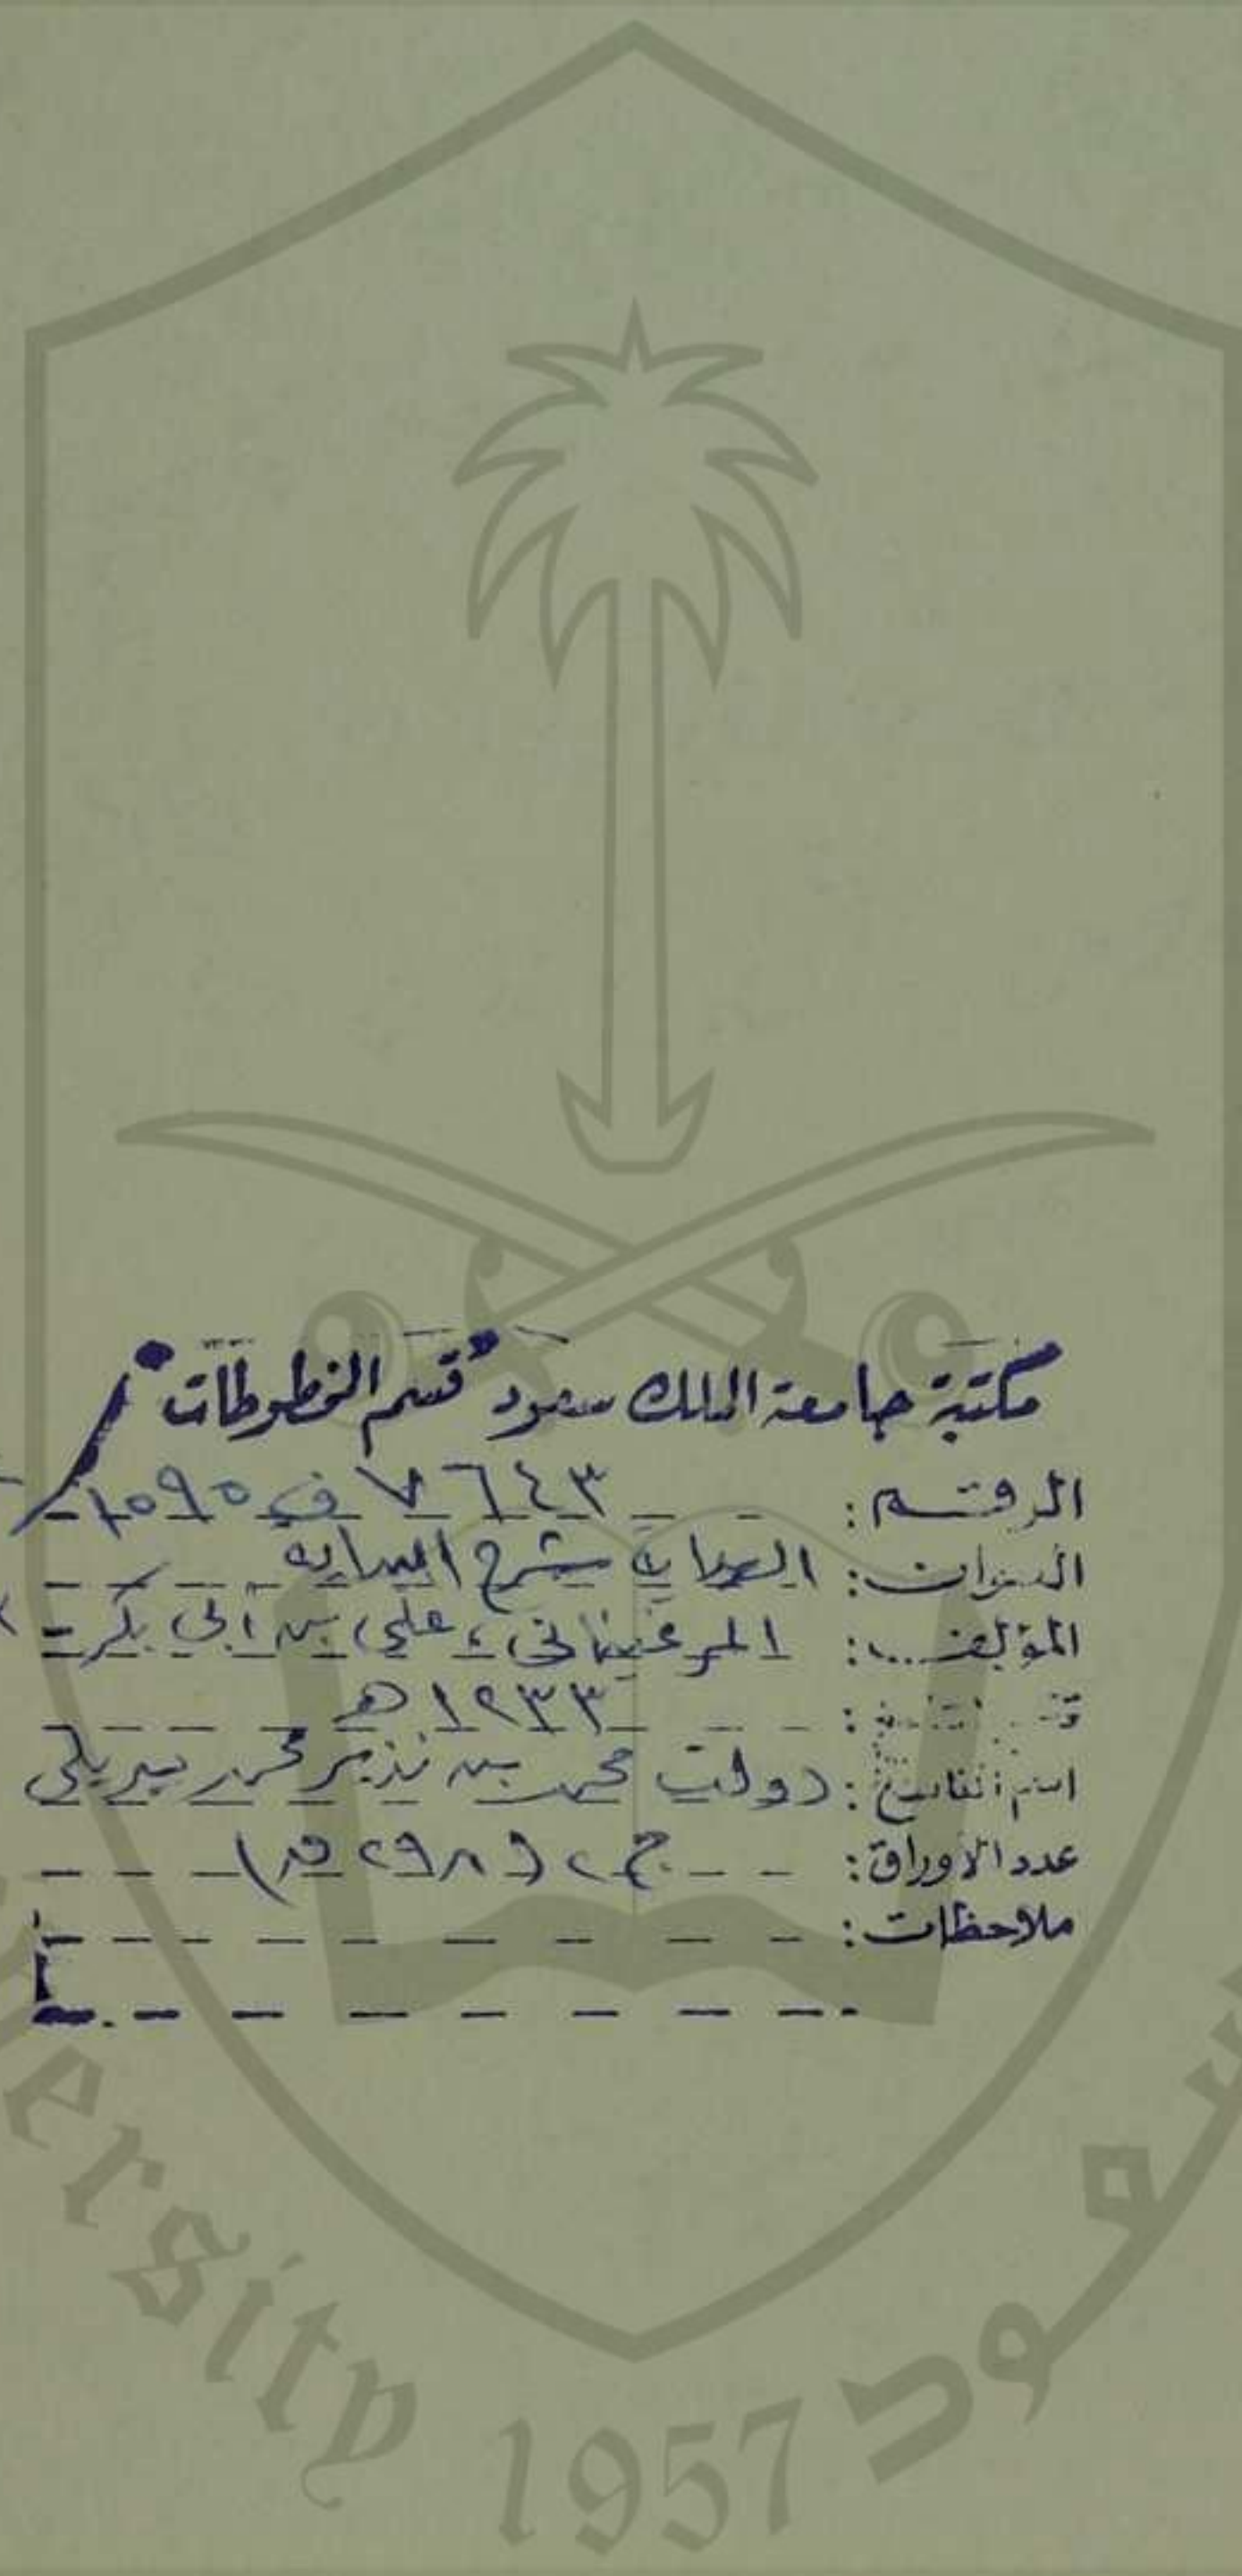 مكتبة جامعة الملك سعود "قسم المخطوطات"
الرقم: ٧٦٤٣ ف ١٥٩٥
العنوان: الهداية شرح البداية
المؤلف: المرغيناني، علي بن أبي بكر
١٢٣٣ هـ
اسم الناسخ: دولت محمد بن نذير محمد
عدد الأوراق: ج٢ (٢٩٨ ق)
ملاحظات:
ersity 1957 سعود